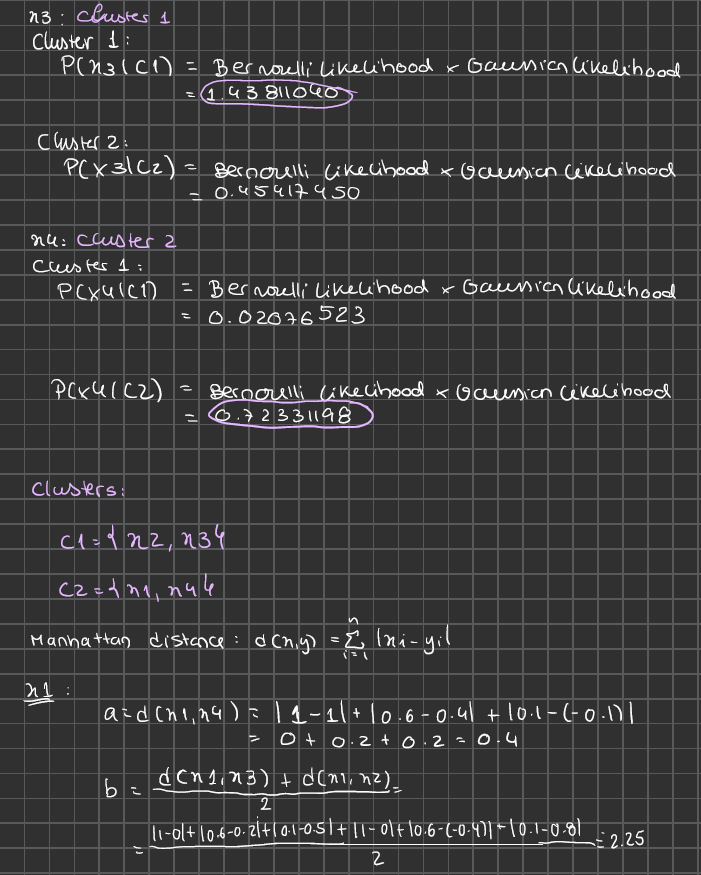 x3: Cluster 1
Cluster 1:
P(x3|C1) = Bernoulli Likelihood × Gaussian Likelihood
= 1.43811040
Cluster 2:
P(x3|C2) = Bernoulli Likelihood × Gaussian Likelihood
= 0.45417450
x4: Cluster 2
Cluster 1:
P(x4|C1) = Bernoulli Likelihood × Gaussian Likelihood
= 0.02076523
P(x4|C2) = Bernoulli Likelihood × Gaussian Likelihood
= 0.72331198
Clusters:
C1 = {x2, x3}
C2 = {x1, x4}
Manhattan distance: d(x,y) = ∑ᵢ₌₁ⁿ |xi - yi|
x1:
a = d(x1, x4) = |1-1| + |0.6-0.4| + |0.1-(-0.1)|
= 0 + 0.2 + 0.2 = 0.4
b = (d(x1, x3) + d(x1, x2))/2 =
= (|1-0|+|0.6-0.2|+|0.1-0.5|+|1-0|+|0.6-(-0.4)|+|0.1-0.8|)/2 = 2.25